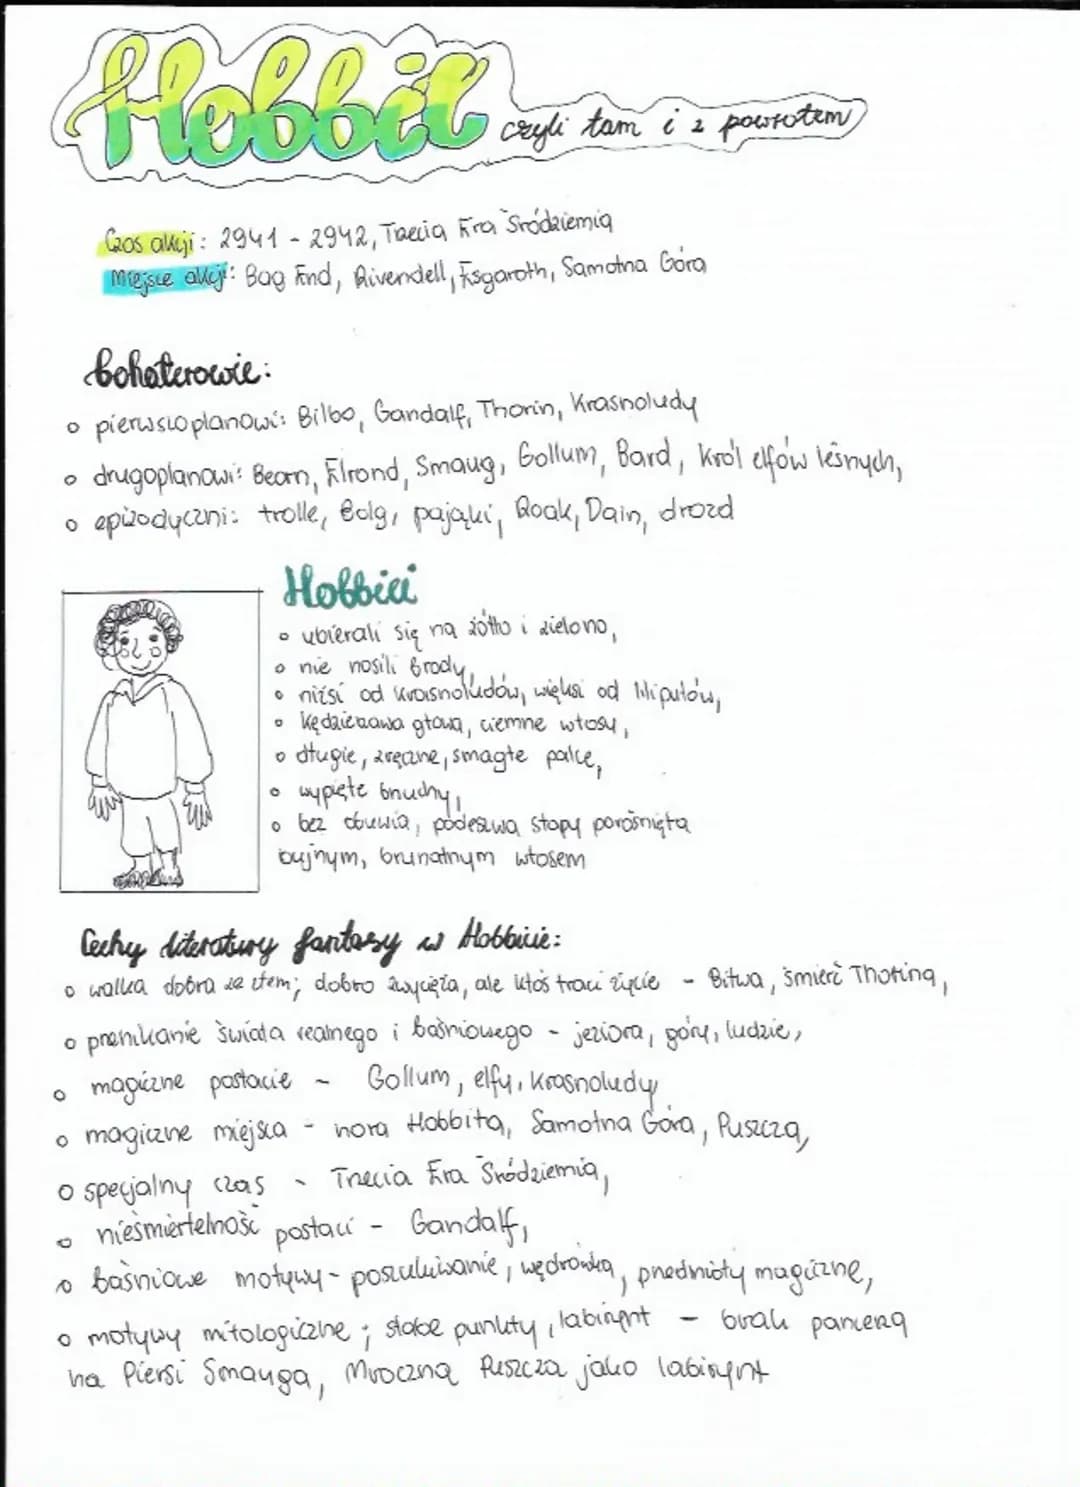 Hobbit czyli tam i z powrotem
Czas akcji: 2941 - 2942, Trzecia Era Śródziemia
Miejsce akcji: Bag End, Rivendell, Esgaroth, Samotna Góra
bohaterowie:
o pierwszoplanowi: Bilbo, Gandalf, Thorin, Krasnoludy
o drugoplanowi: Beorn, Elrond, Smaug, Gollum, Bard, Król elfów leśnych,
o epizodyczni: trolle, Bolg, pająki, Roak, Dain, drozd
Hobbici
o ubierali się na żółto i zielono,
o nie nosili brody,
o niżsi od krasnoludów, więksi od liliputów,
o kędzierzawa głowa, ciemne włosy,
o długie, zręczne, smagłe palce,
o wypięte brzuchy,
o bez obuwia, podeszwa stopy porośnięta
bujnym, brunatnym włosem
Cechy literatury fantasy w Hobbicie:
o walka dobra ze złem; dobro zwycięża, ale ktoś traci życie - Bitwa, śmierć Thorina,
o przenikanie świata realnego i baśniowego - jeziora, góry, ludzie,
o magiczne postacie - Gollum, elfy, krasnoludy
o magiczne miejsca - nora Hobbita, Samotna Góra, Puszcza,
o specjalny czas - Trzecia Era Śródziemia,
o nieśmiertelność postaci - Gandalf,
o baśniowe motywy - poszukiwanie, wędrówka, przedmioty magiczne,
o motywy mitologiczne; słabe punkty, labirynt - brak pancerza
na Piersi Smauga, Mroczna Puszcza jako labirynt